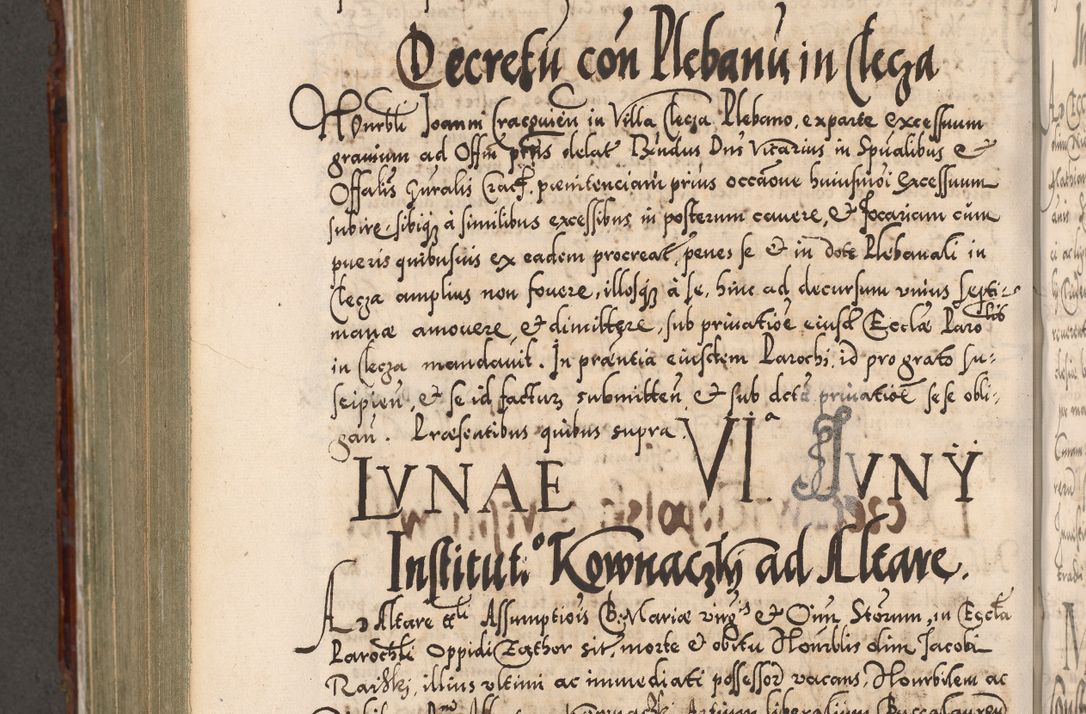 Decretū con Plebanū in Clecza
Honrbli Joanni Cracquien in Villa Clecza Plebano, ex parte excessuum
gravium ad Offm pntis delat Rndus Dns Vicarius in Spūalibus &
Offalis Gnralis Crac. penitenciam prius occaōne huiusmōi excessuum
subire, sibiqz à similibus excessibus in posterum cavere, & focariam cum
pueris quibusvis ex eadem procreat, penes se & in dote Plebanali in
Clecza amplius non fovere, illosqz à se, hinc ad decursum unius septi-
manæ amovere & dimittere, sub privatioē eiusd Ecclæ Parolis
in Clecza mandavit. In præntia eiusdem Parochi, id pro grato su-
scipien, & se id facturz submitten, & sub dcta privatioē sese obli-
gan. Præsentibus quibus supra.
LVNAE VIa. IVNY
Institut.o Kownaczky ad Altare.
AD Altare ttli Assumptiōis B. Mariæ virgis & Oim Stōrum, in Eccla
Parochli Oppidi Exthor sit, morte & obitu Honrblis olim Jacobi
Raiskj, illius ultimi ac immediati possessor vacans, Honrbilem ac